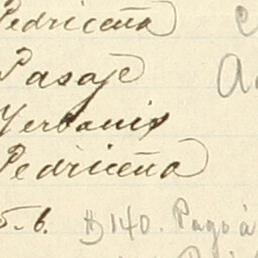 Pedriceña
Pasaje
Yerbanis
Pedriceña
5-6. 140. Pagó á